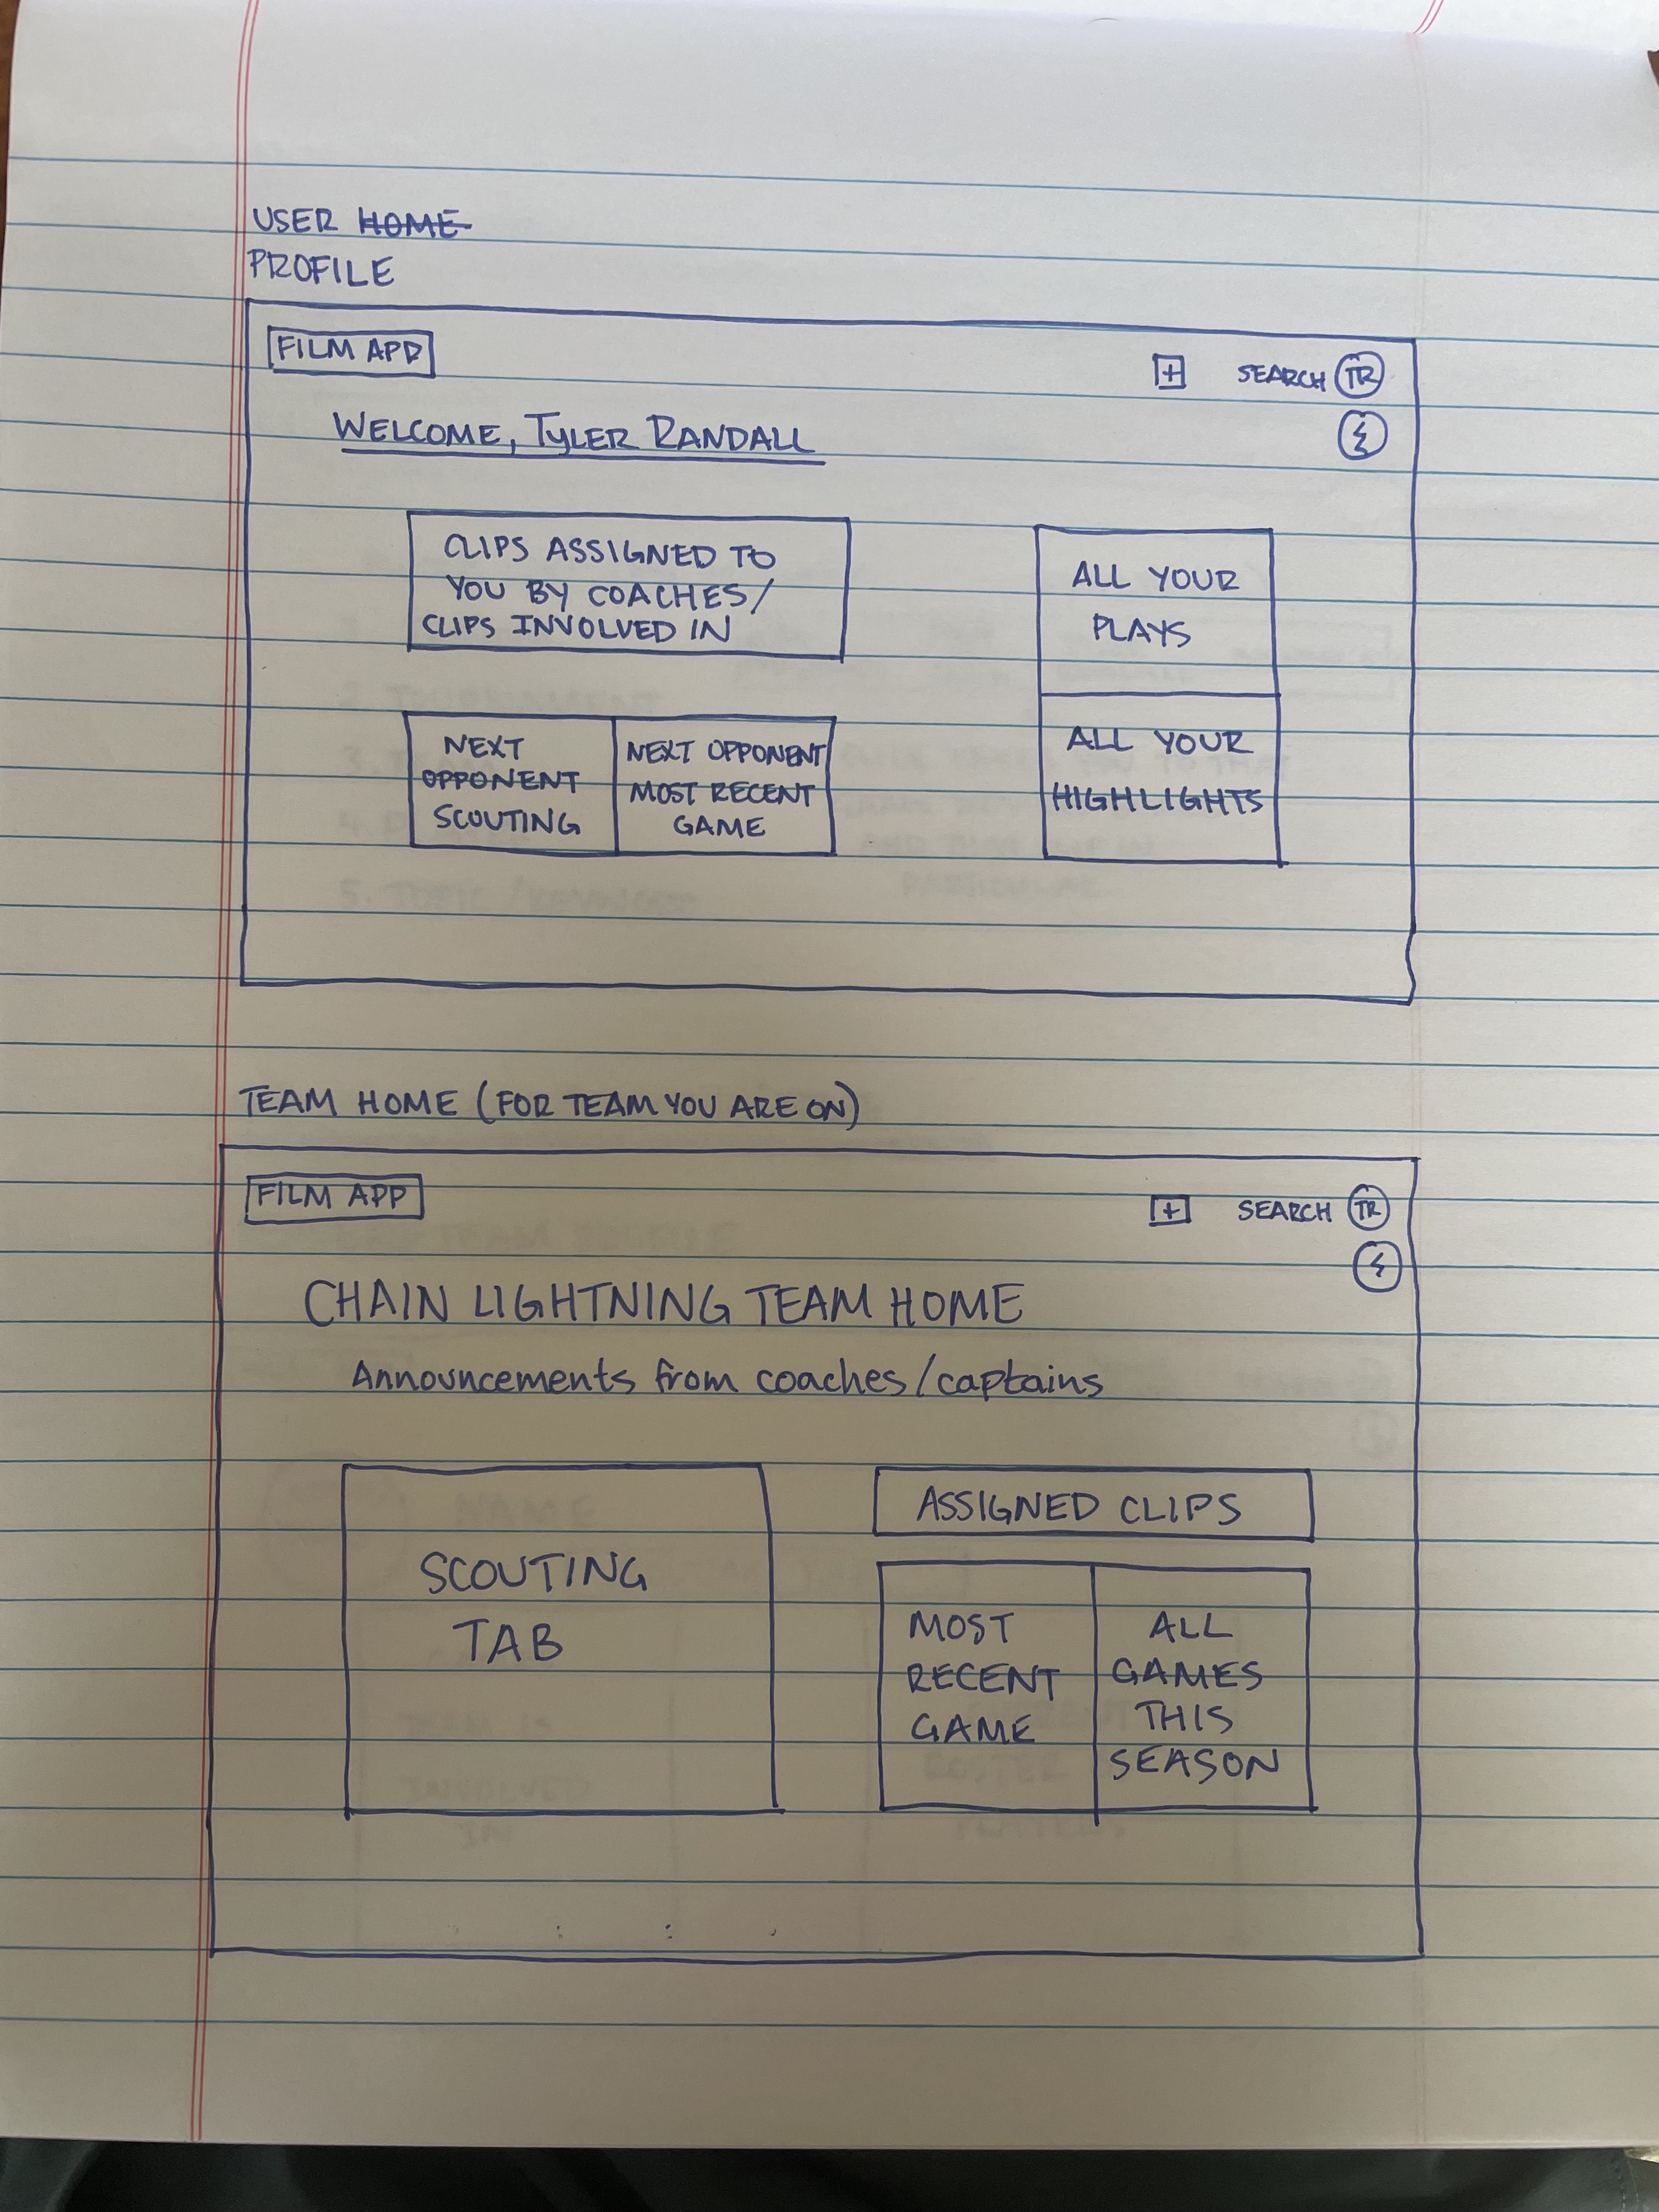 USER HOME
PROFILE
FILM APP
+ SEARCH TR
WELCOME, TYLER RANDALL
CLIPS ASSIGNED TO
YOU BY COACHES/
CLIPS INVOLVED IN
ALL YOUR
PLAYS
NEXT
OPPONENT
SCOUTING
NEXT OPPONENT
MOST RECENT
GAME
ALL YOUR
HIGHLIGHTS
TEAM HOME (FOR TEAM YOU ARE ON)
FILM APP
+ SEARCH TR
CHAIN LIGHTNING TEAM HOME
Announcements from coaches/captains
SCOUTING
TAB
ASSIGNED CLIPS
MOST
RECENT
GAME
ALL
GAMES
THIS
SEASON